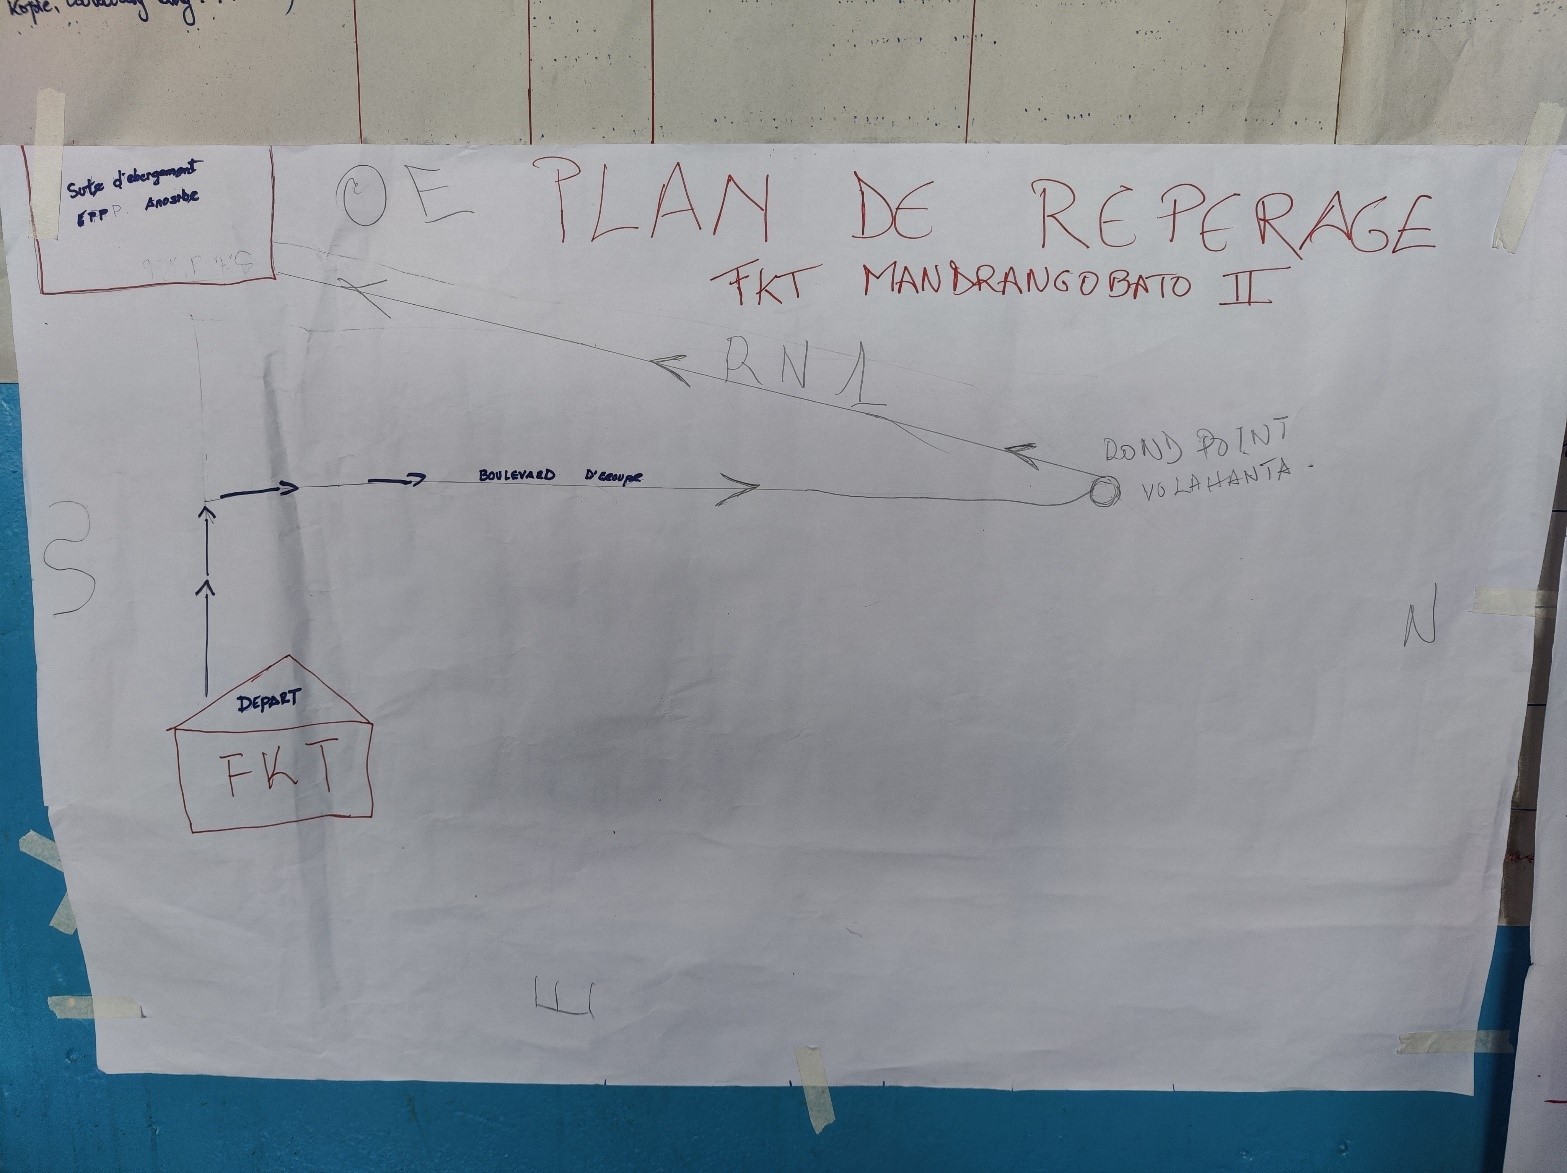 Kopie,
Sute d'ebergement
EPP P. Anosibe
OE
PLAN DE REPERAGE
FKT MANDRANGOBATO II
RN1
ROND POINT
VOLAHANTA.
BOULEVARD D'EROUPE
S
N
DEPART
FKT
E